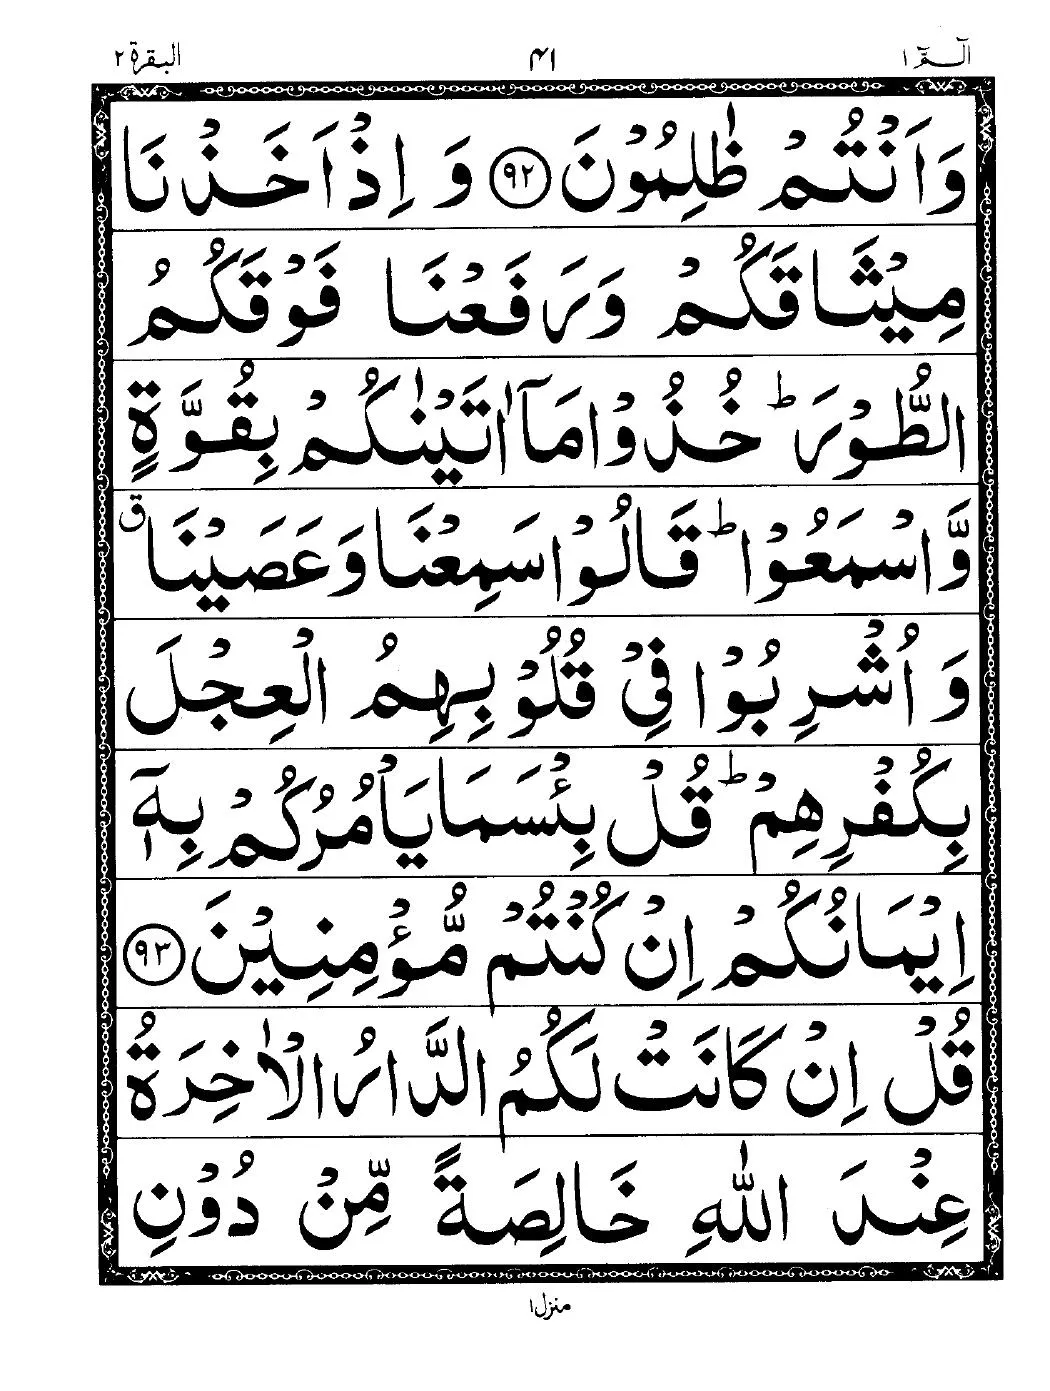 الٓـمّٓ ۱ ۴۱ البقرة ۲
وَ اَنْتُمْ ظٰلِمُوْنَ ۹۲ وَ اِذْ اَخَذْنَا
مِیْثَاقَكُمْ وَ رَفَعْنَا فَوْقَكُمُ
الطُّوْرَ ؕ خُذُوْا مَاۤ اٰتَیْنٰكُمْ بِقُوَّةٍ
وَّ اسْمَعُوْا ؕ قَالُوْا سَمِعْنَا وَ عَصَیْنَا ۗ ق
وَ اُشْرِبُوْا فِیْ قُلُوْبِهِمُ الْعِجْلَ
بِكُفْرِهِمْ ؕ قُلْ بِئْسَمَا یَاْمُرُكُمْ بِهٖۤ
اِیْمَانُكُمْ اِنْ كُنْتُمْ مُّؤْمِنِیْنَ ۹۳
قُلْ اِنْ كَانَتْ لَكُمُ الدَّارُ الْاٰخِرَةُ
عِنْدَ اللّٰهِ خَالِصَةً مِّنْ دُوْنِ
منزل ۱